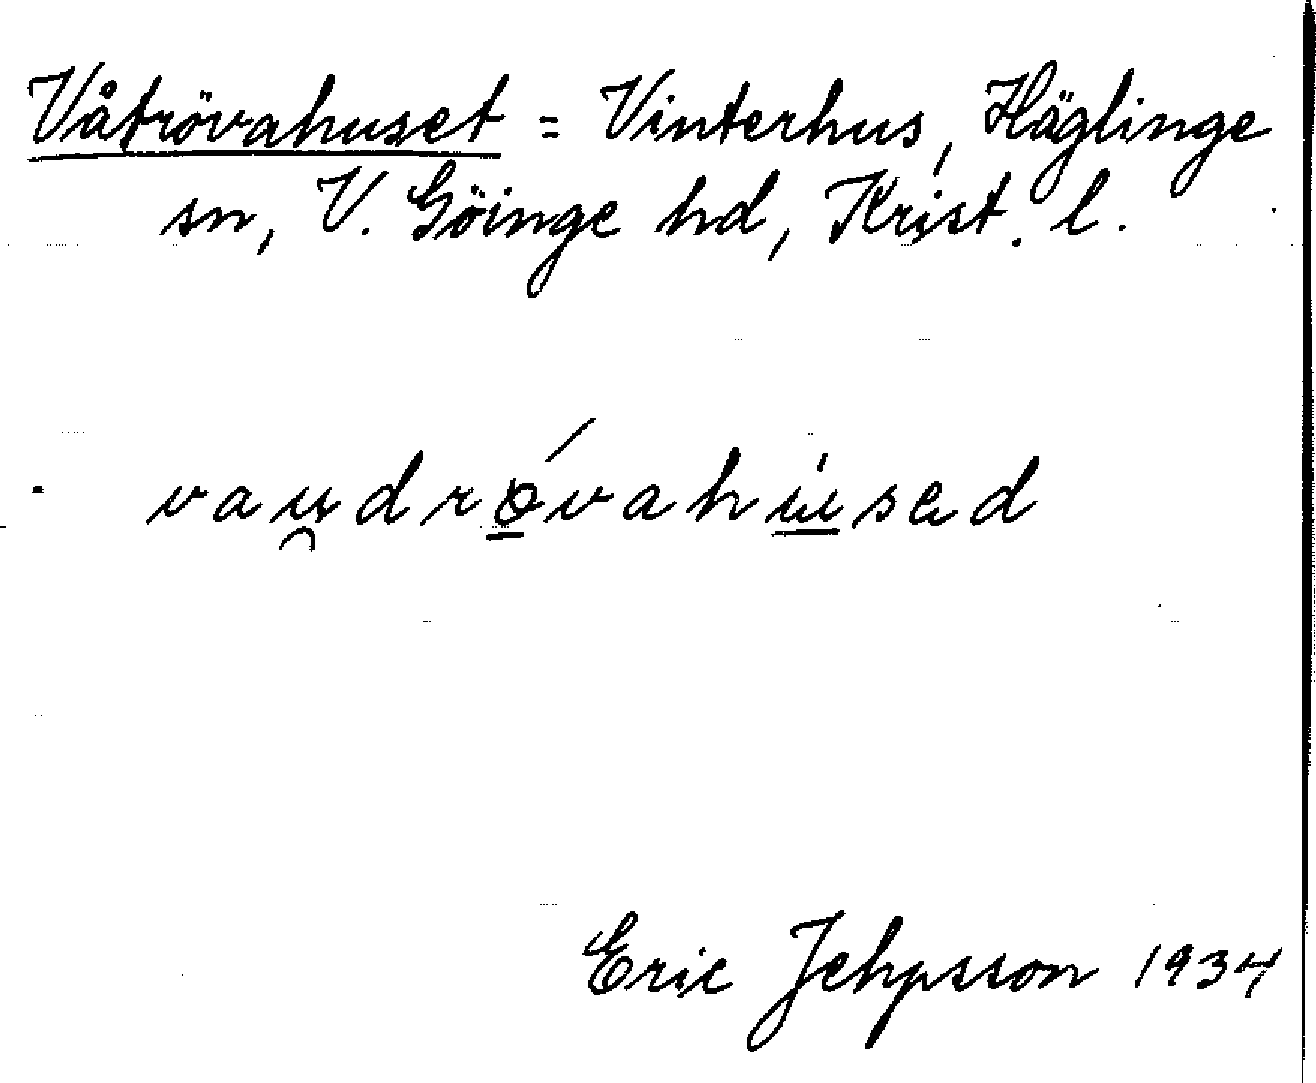 Våtrövahuset = Vinterhus, Häglinge
sn, V. Göinge hd, Krist. l.
vau̯drǿ̱vahú̱sed
Eric Jehpsson 1934